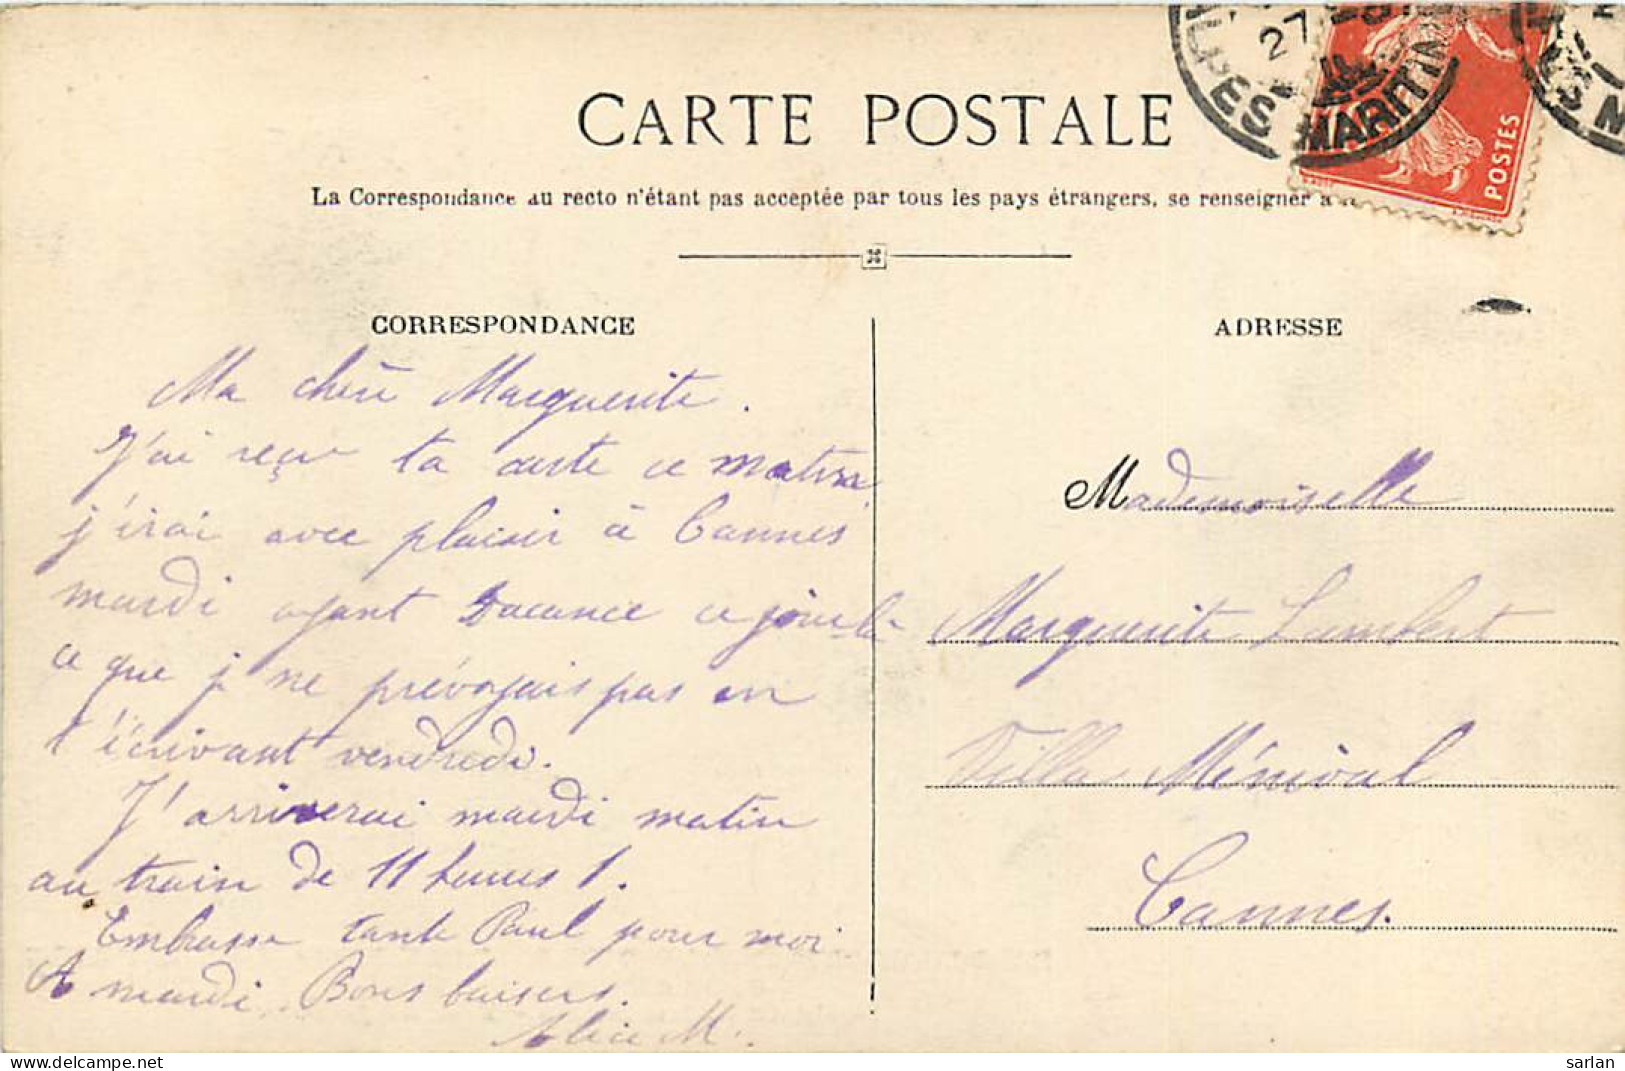 CARTE POSTALE
La Correspondance au recto n'étant pas acceptée par tous les pays étrangers, se renseigner à
CORRESPONDANCE
Ma chère Marguerite.
J'ai reçu ta carte ce matin
j'irai avec plaisir à Cannes
mardi ayant vacance ce jour là
ce que je ne prévoyais pas en
t'écrivant vendredi.
J'arriverai mardi matin
au train de 11 heures 1.
Embrasse tante Paul pour moi
A mardi. Bons baisers.
Alice M.
ADRESSE
Mademoiselle
Marguerite Lambert
Villa
Cannes.
27
ALPES MARITIM
POSTES
sarlan